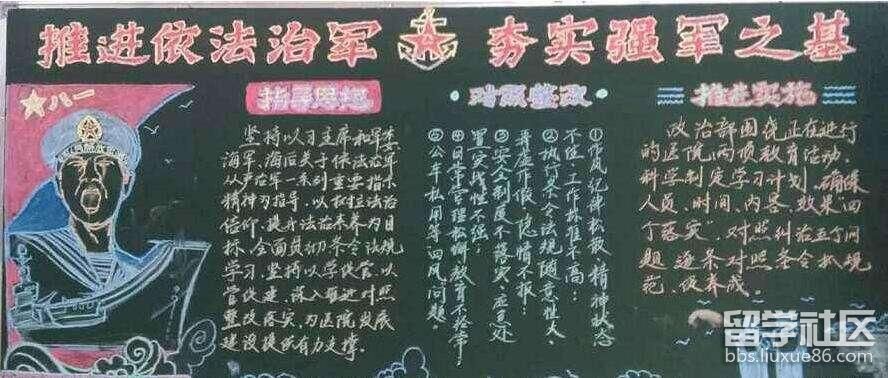 推进依法治军 夯实强军之基
八一
指导思想
坚持以习主席和军委
海军、海后关于依法治军
从严治军一系列重要指示
精神为指导，以树立法治
信仰，提升法治素养为目
标，全面贯彻条令法规
学习，坚持以学促管、以
管促建，深入推进对照
整改落实，为医院发展
建设提供有力支撑。
对照整改
①作风纪律松散，精神状态
不佳，工作标准不高；
②执行条令法规随意性大，
弄虚作假，隐情不报；
③安全制度不落实，应急处
置实战性不强；
④日常管理松懈，教育不经常；
⑤公车私用等四风问题。
推进实施
政治部围绕正在进行
的医院两项教育活动，
科学制定学习计划，确保
人员、时间、内容、效果“四
个落实”，对照纠治五个问
题，逐条对照条令抓规
范、促养成。
留学社区
bbs.liuxue86.com